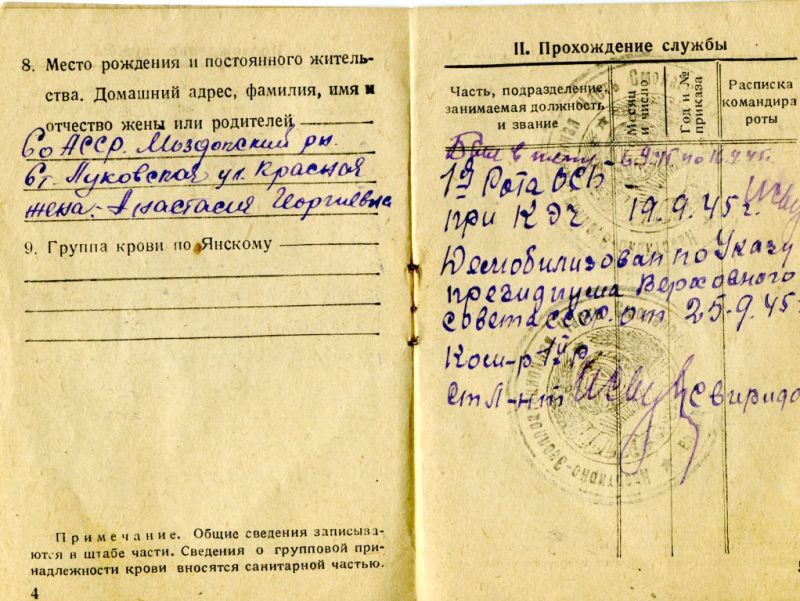 8. Место рождения и постоянного житель-
ства. Домашний адрес, фамилия, имя и
отчество жены или родителей
Со АССР. Моздокский рн.
Ст. Луковская ул. Красная
жена: Анастасия Георгиевна
9. Группа крови по Янскому
Примечание. Общие сведения записыва-
ются в штабе части. Сведения о групповой при-
надлежности крови вносятся санитарной частью.
4
II. Прохождение службы
Часть, подразделение, занимаемая должность и звание
Месяц и число
Год и № приказа
Расписка командира роты
в
1я Рота ОСБ
при КЭЧ 19.9.45 г.
Демобилизован по Указу
президиума Верховного
совета СССР. от 25.9.45г
Ком-р 1й р.
Ст Л-нт Свиридо